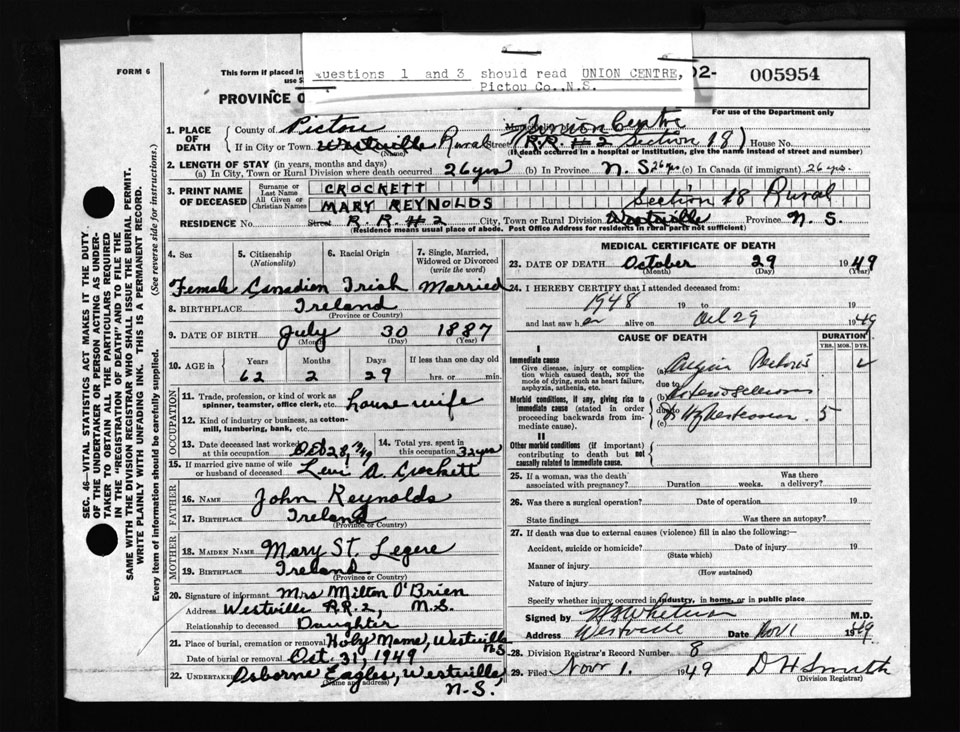 FORM 6
This form if placed in
use S
PROVINCE O
uestions 1 and 3 should read UNION CENTRE,
Pictou Co., N.S.
02- 005954
For use of the Department only
1. PLACE OF DEATH
County of Pictou Union Centre
If in City or Town Westville Rural Street (R.R. #2 Section 18) House No.
(Name) (If death occurred in a hospital or institution, give the name instead of street and number)
2. LENGTH OF STAY (in years, months and days)
(a) In City, Town or Rural Division where death occurred 26 yrs (b) In Province N.S 26 yrs (c) In Canada (if immigrant) 26 yrs.
3. PRINT NAME OF DECEASED
Surname or Last Name CROCKETT
All Given or Christian Names MARY REYNOLDS Section 18 Rural
RESIDENCE No. Street R.R. #2 City, Town or Rural Division Westville Province N.S.
(Residence means usual place of abode. Post Office Address for residents in rural parts not sufficient)
4. Sex 5. Citizenship (Nationality) 6. Racial Origin 7. Single, Married, Widowed or Divorced (write the word)
Female Canadian Irish Married
8. BIRTHPLACE Ireland
(Province or Country)
9. DATE OF BIRTH July 30 1887
(Month) (Day) (Year)
10. AGE in Years Months Days If less than one day old
62 2 29 hrs. or min.
OCCUPATION
11. Trade, profession, or kind of work as spinner, teamster, office clerk, etc. house wife
12. Kind of industry or business, as cotton-mill, lumbering, bank, etc.
13. Date deceased last worked at this occupation 28, 49 14. Total yrs. spent in this occupation 32 yrs
15. If married give name of wife or husband of deceased Levi A. Crockett
FATHER
16. NAME John Reynolds
17. BIRTHPLACE Ireland
(Province or Country)
MOTHER
18. MAIDEN NAME Mary St. Legere
19. BIRTHPLACE Ireland
(Province or Country)
20. Signature of informant Mrs Milton O'Brien
Address Westville R.R.2, N.S.
Relationship to deceased Daughter
21. Place of burial, cremation or removal Holy Name, Westville N.S
Date of burial or removal Oct. 31, 1949
22. UNDERTAKER Osborne Eagles, Westville
(Name and address) N.S.
MEDICAL CERTIFICATE OF DEATH
23. DATE OF DEATH October 29 1949
(Month) (Day) (Year)
24. I HEREBY CERTIFY that I attended deceased from:
1948 19 to Oct 29
and last saw her alive on 1949
CAUSE OF DEATH DURATION
YRS. MOS. DYS.
I
Immediate cause
Give disease, injury or complication which caused death, nor the mode of dying, such as heart failure, asphyxia, asthenia, etc.
(a) Angina Pectoris
due to
Morbid conditions, if any, giving rise to immediate cause (stated in order proceeding backwards from immediate cause).
due to
(c) 5
II
Other morbid conditions (if important) contributing to death but not causally related to immediate cause.
25. If a woman, was the death associated with pregnancy? Duration weeks. Was there a delivery?
26. Was there a surgical operation? Date of operation 19
State findings Was there an autopsy?
27. If death was due to external causes (violence) fill in also the following:—
Accident, suicide or homicide? Date of injury 19
(State which)
Manner of injury
(How sustained)
Nature of injury
Specify whether injury occurred in industry, in home, or in public place
Signed by M.D.
Address Westville Date Nov 1 1949
28. Division Registrar's Record Number 8
29. Filed Nov. 1. 1949 D H Smith
(Division Registrar)
SEC. 46—VITAL STATISTICS ACT MAKES IT THE DUTY
OF THE UNDERTAKER OR PERSON ACTING AS UNDER-
TAKER TO OBTAIN ALL THE PARTICULARS REQUIRED
IN THE "REGISTRATION OF DEATH" AND TO FILE THE
SAME WITH THE DIVISION REGISTRAR WHO SHALL ISSUE THE BURIAL PERMIT.
WRITE PLAINLY WITH UNFADING INK. THIS IS A PERMANENT RECORD.
Every item of information should be carefully supplied. (See reverse side for instructions.)